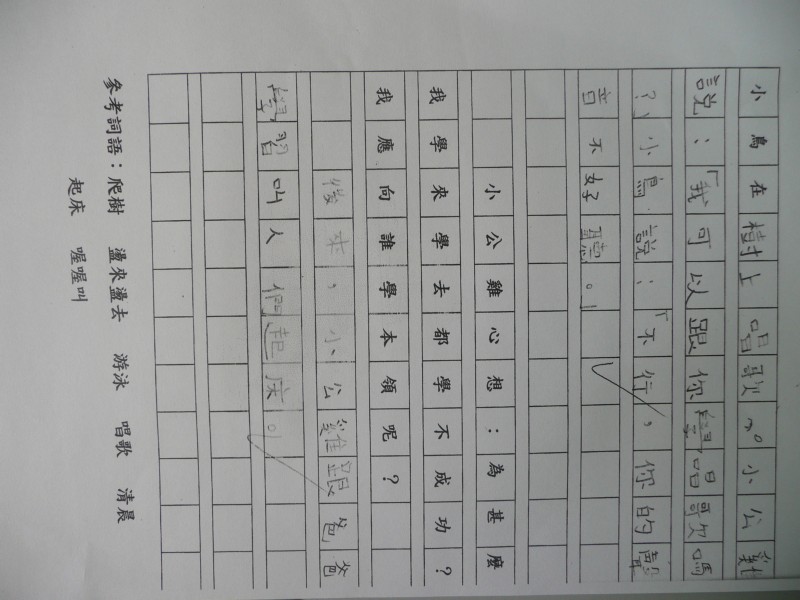 小鳥在樹上唱歌。小公雞
說：「我可以跟你學唱歌嗎
？」小鳥說：「不行，你的聲
音不好聽。」
小公雞心想：為甚麼
我學來學去都學不成功？
我應向誰學本領呢？
後來，小公雞跟爸爸
學習叫人們起床。
參考詞語：爬樹 盪來盪去 游泳 唱歌 清晨
起床 喔喔叫